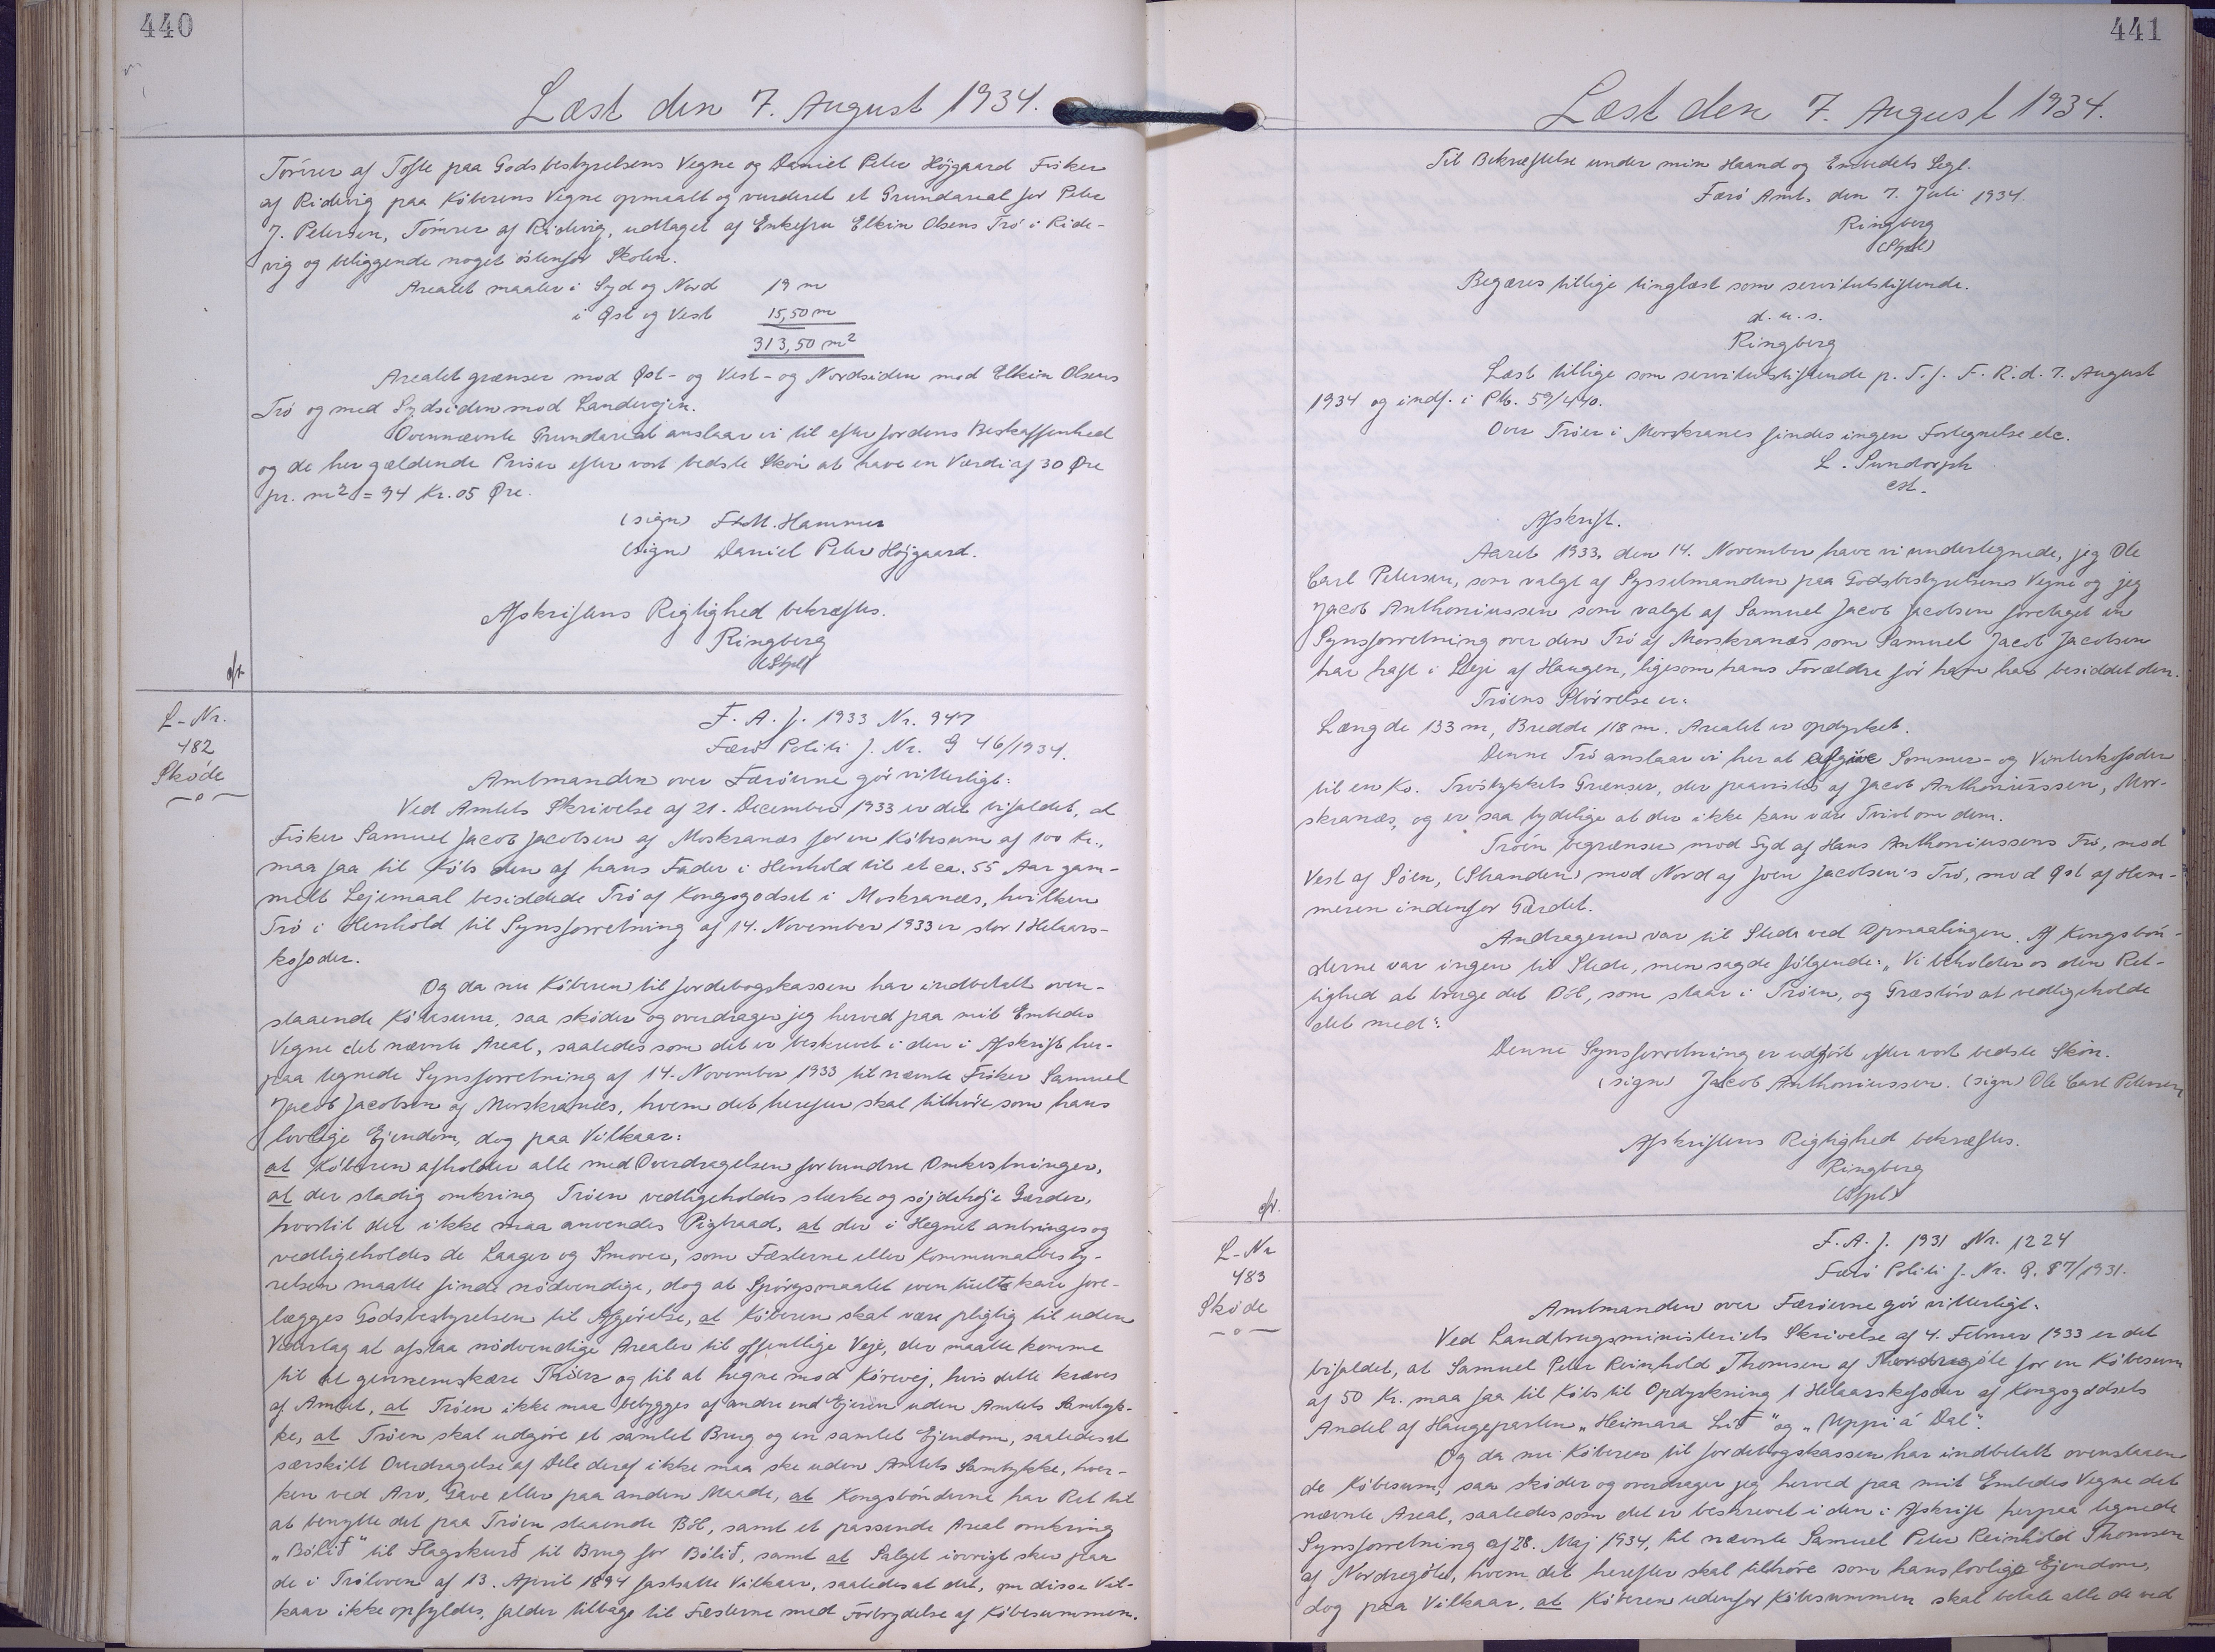 440
Læst den 7. August 1934.
Tömrer af Tofte paa Godsbestyrelsens Vegne og Daniel Peter Höjgaard Fisker
af Ridevig paa Köberens Vegne opmaalt og vurderet et Grundareal for Peter
J. Petersen, Tömrer af Ridevig, udtaget af Enkefru Elkin Olsens Trö i Ride-
vig og beliggende noget östenfor Skolen.
Arealet maaler i Syd og Nord 19 m
i Øst og Vest 15,50 m
313,50 m2
Arealet grænser mod Øst- og Vest- og Nordsiden mod Elkin Olsens
Trö og med Sydsiden mod Landevejen.
Ovennævnte Grundareal anslaar vi til efter Jordens Beskaffenhed
og de her gældende Priser efter vort bedste Skön at have en Værdi af 30 Øre
pr. m2 = 94 Kr. 05 Øre.
(sign) Hammer
(sign) Daniel Peter Höjgaard.
Afskriftens Rigtighed bekræftes.
Ringberg
(Stpl)
L-Nr.
482
Sköde
F. A. J. 1933 Nr. 947
Færö Politi J. Nr. G 46/1934.
Amtmanden over Færöerne gör vitterligt:
Ved Amtets Skrivelse af 21. December 1933 er det bifaldet, at
Fisker Samuel Jacob Jacobsen af Morskranæs for en Köbesum af 100 Kr.,
maa faa til Köbs den af hans Fader i Henhold til et ca. 55 Aar gam-
melt Lejemaal besiddede Trö af Kongsgodset i Morskranæs, hvilken
Trö i Henhold til Synsforretning af 14. November 1933 er stor 1 Helaars-
kofoder.
Og da nu Köberen til Jordebogskassen har indbetalt oven-
staaende Köbesum, saa sköder og overdrager jeg herved paa mit Embedes
Vegne det nævnte Areal, saaledes som det er beskrevet i den i Afskrift her-
paa tegnede Synsforretning af 14. November 1933 til nævnte Fisker Samuel
Jacob Jacobsen af Morskranæs, hvem det herefter skal tilhöre som hans
lovlige Ejendom, dog paa Vilkaar:
at Köberen afholder alle med Overdragelsen forbundne Omkostninger,
at der stadig omkring Tröen vedligeholdes stærke og söjdehöje Gærder,
hvortil der ikke maa anvendes Pigtraad, at der i Hegnet anbringes og
vedligeholdes de Laager og Smover, som Fæsterne eller Kommunalbesty-
relsen maatte finde nödvendige, dog at Spörgsmaalet eventuelt kan fore-
lægges Godsbestyrelsen til Afgörelse, at Köberen skal være pligtig til uden
Vederlag at afstaa nödvendige Arealer til offentlige Veje, der maatte komme
til at gennemskære Tröen og til at hegne mod Körevej, hvis dette kræves
af Amtet, at Tröen ikke maa bebygges af andre end Ejeren uden Amtets Samtyk-
ke, at Tröen skal udgöre et samlet Brug og en samlet Ejendom, saaledes at
særskilt Overdragelse af Dele deraf ikke maa ske uden Amtets Samtykke, hver-
ken ved Arv, Gave eller paa anden Maade, at Kongsbönderne har Ret til
at benytte det paa Tröen staaende Ból, samt et passende Areal omkring
"Bólið" til Flagskurð til Brug for Bólið, samt at Salget iövrigt sker paa
de i Tröloven af 13. April 1894 fastsatte Vilkaar, saaledes at det, om disse Vil-
kaar ikke opfyldes, falder tilbage til Fæsterne med Fortrydelse af Köbesummen.
441
Læst den 7. August 1934.
Til Bekræftelse under min Haand og Embedets Segl.
Færö Amt, den 7. Juli 1934.
Ringberg
(Stpl)
Begæres tillige tinglæst som servitutstiftende.
d. u. s.
Ringberg
Læst tillige som servitutstiftende p. T. f. F. R. d. 7. August
1934 og indf. i Ptb. 59/440.
Over Tröer i Morskranes findes ingen Fortegnelse etc.
L. Sundorph
cst.
Afskrift.
Aaret 1933, den 14. November have vi undertegnede, jeg Ole
Carl Petersen, som valgt af Sysselmanden paa Godsbestyrelsens Vegne og jeg
Jacob Anthoniussen som valgt af Samuel Jacob Jacobsen foretaget en
Synsforretning over den Trö af Morskranæs som Samuel Jacob Jacobsen
har haft i Leje af Haugen, ligesom hans Forældre för ham har besiddet den.
Tröens Störrelse er:
Længde 133 m, Bredde 118 m. Arealet er opdyrket.
Denne Trö anslaar vi her at afgive Sommer- og Vinterkofoder
til en Ko. Tröstykkets Grænser, der paavistes af Jacob Anthoniussen, Mor-
skranæs, og er saa tydelige at der ikke kan være Tvivl om dem.
Tröen begrænses mod Syd af Hans Anthoniussens Trö, mod
Vest af Söen, (Stranden) mod Nord af Joen Jacobsen's Trö, mod Øst af Ham-
meren indenfor Gærdet.
Andrageren var til Stede ved Opmaalingen. Af Kongsbön-
derne var ingen til Stede, men sagde fölgende: "Vi beholder os den Ret-
tighed at bruge det Ból, som staar i Tröen, og Græstörv at vedligeholde
det med".
Denne Synsforretning er udfört efter vort bedste Skön.
(sign) Jacob Anthoniussen. (sign) Ole Carl Petersen
Afskriftens Rigtighed bekræftes.
Ringberg
(Stpl)
L-Nr
483
Sköde
F. A. J. 1931 Nr. 1224
Færö Politi J. Nr. G. 87/1931.
Amtmanden over Færöerne gör vitterligt:
Ved Landbrugsministeriets Skrivelse af 4. Februar 1933 er det
bifaldet, at Samuel Peter Reinhold Thomsen af Nordragöte for en Köbesum
af 50 Kr. maa faa til Köbs til Opdyrkning 1 Helaarskofoder af Kongsgodsets
Andel af Haugeparten "Heimara Lið" og "Uppi á Dal".
Og da nu Köberen til Jordebogskassen har indbetalt ovenstaaen-
de Köbesum, saa sköder og overdrager jeg herved paa mit Embedes Vegne det
nævnte Areal, saaledes som det er beskrevet i den i Afskrift herpaa tegnede
Synsforretning af 28. Maj 1934, til nævnte Samuel Peter Reinhold Thomsen
af Nordregöte, hvem det herefter skal tilhöre som hans lovlige Ejendom,
dog paa Vilkaar, at Köberen udenfor Köbesummen skal betale alle de ved